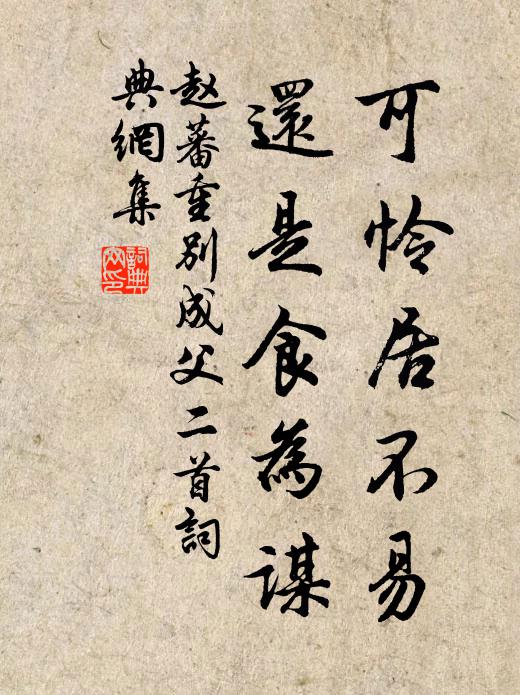 可怜居不易
還是食為謀
赵蕃重别成父二首詞
典網集
詞典